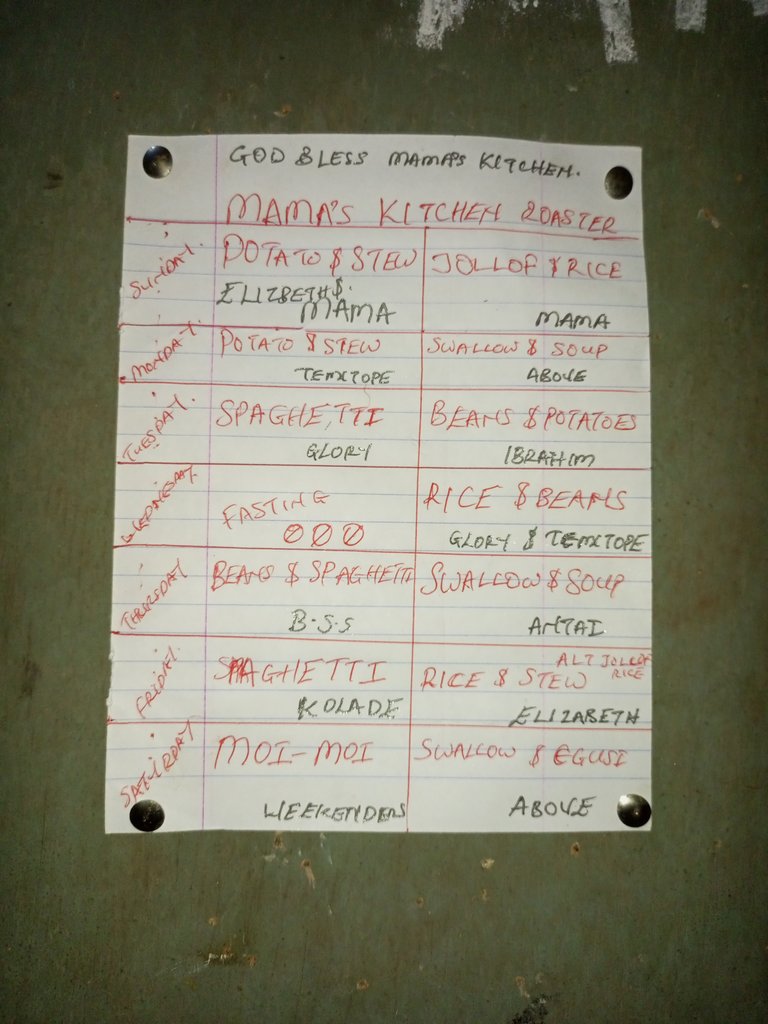 GOD BLESS MAMA'S KITCHEN.
MAMA'S KITCHEN ROASTER
SUNDAY.
POTATO & STEW
ELIZBETH &.
MAMA
JOLLOF & RICE
MAMA
MONDAY.
POTATO & STEW
TEMITOPE
SWALLOW & SOUP
ABOVE
TUESDAY.
SPAGHETTI
GLORY
BEANS & POTATOES
IBRAHIM
WEDNESDAY
FASTING
RICE & BEANS
GLORY & TEMITOPE
THURSDAY
BEANS & SPAGHETTI
B.S.S
SWALLOW & SOUP
ANTAI
FRIDAY.
SPAGHETTI
KOLADE
ALT JOLLOF
RICE
RICE & STEW
ELIZABETH
SATURDAY
MOI-MOI
WEEKENDERS
SWALLOW & EGUSI
ABOVE